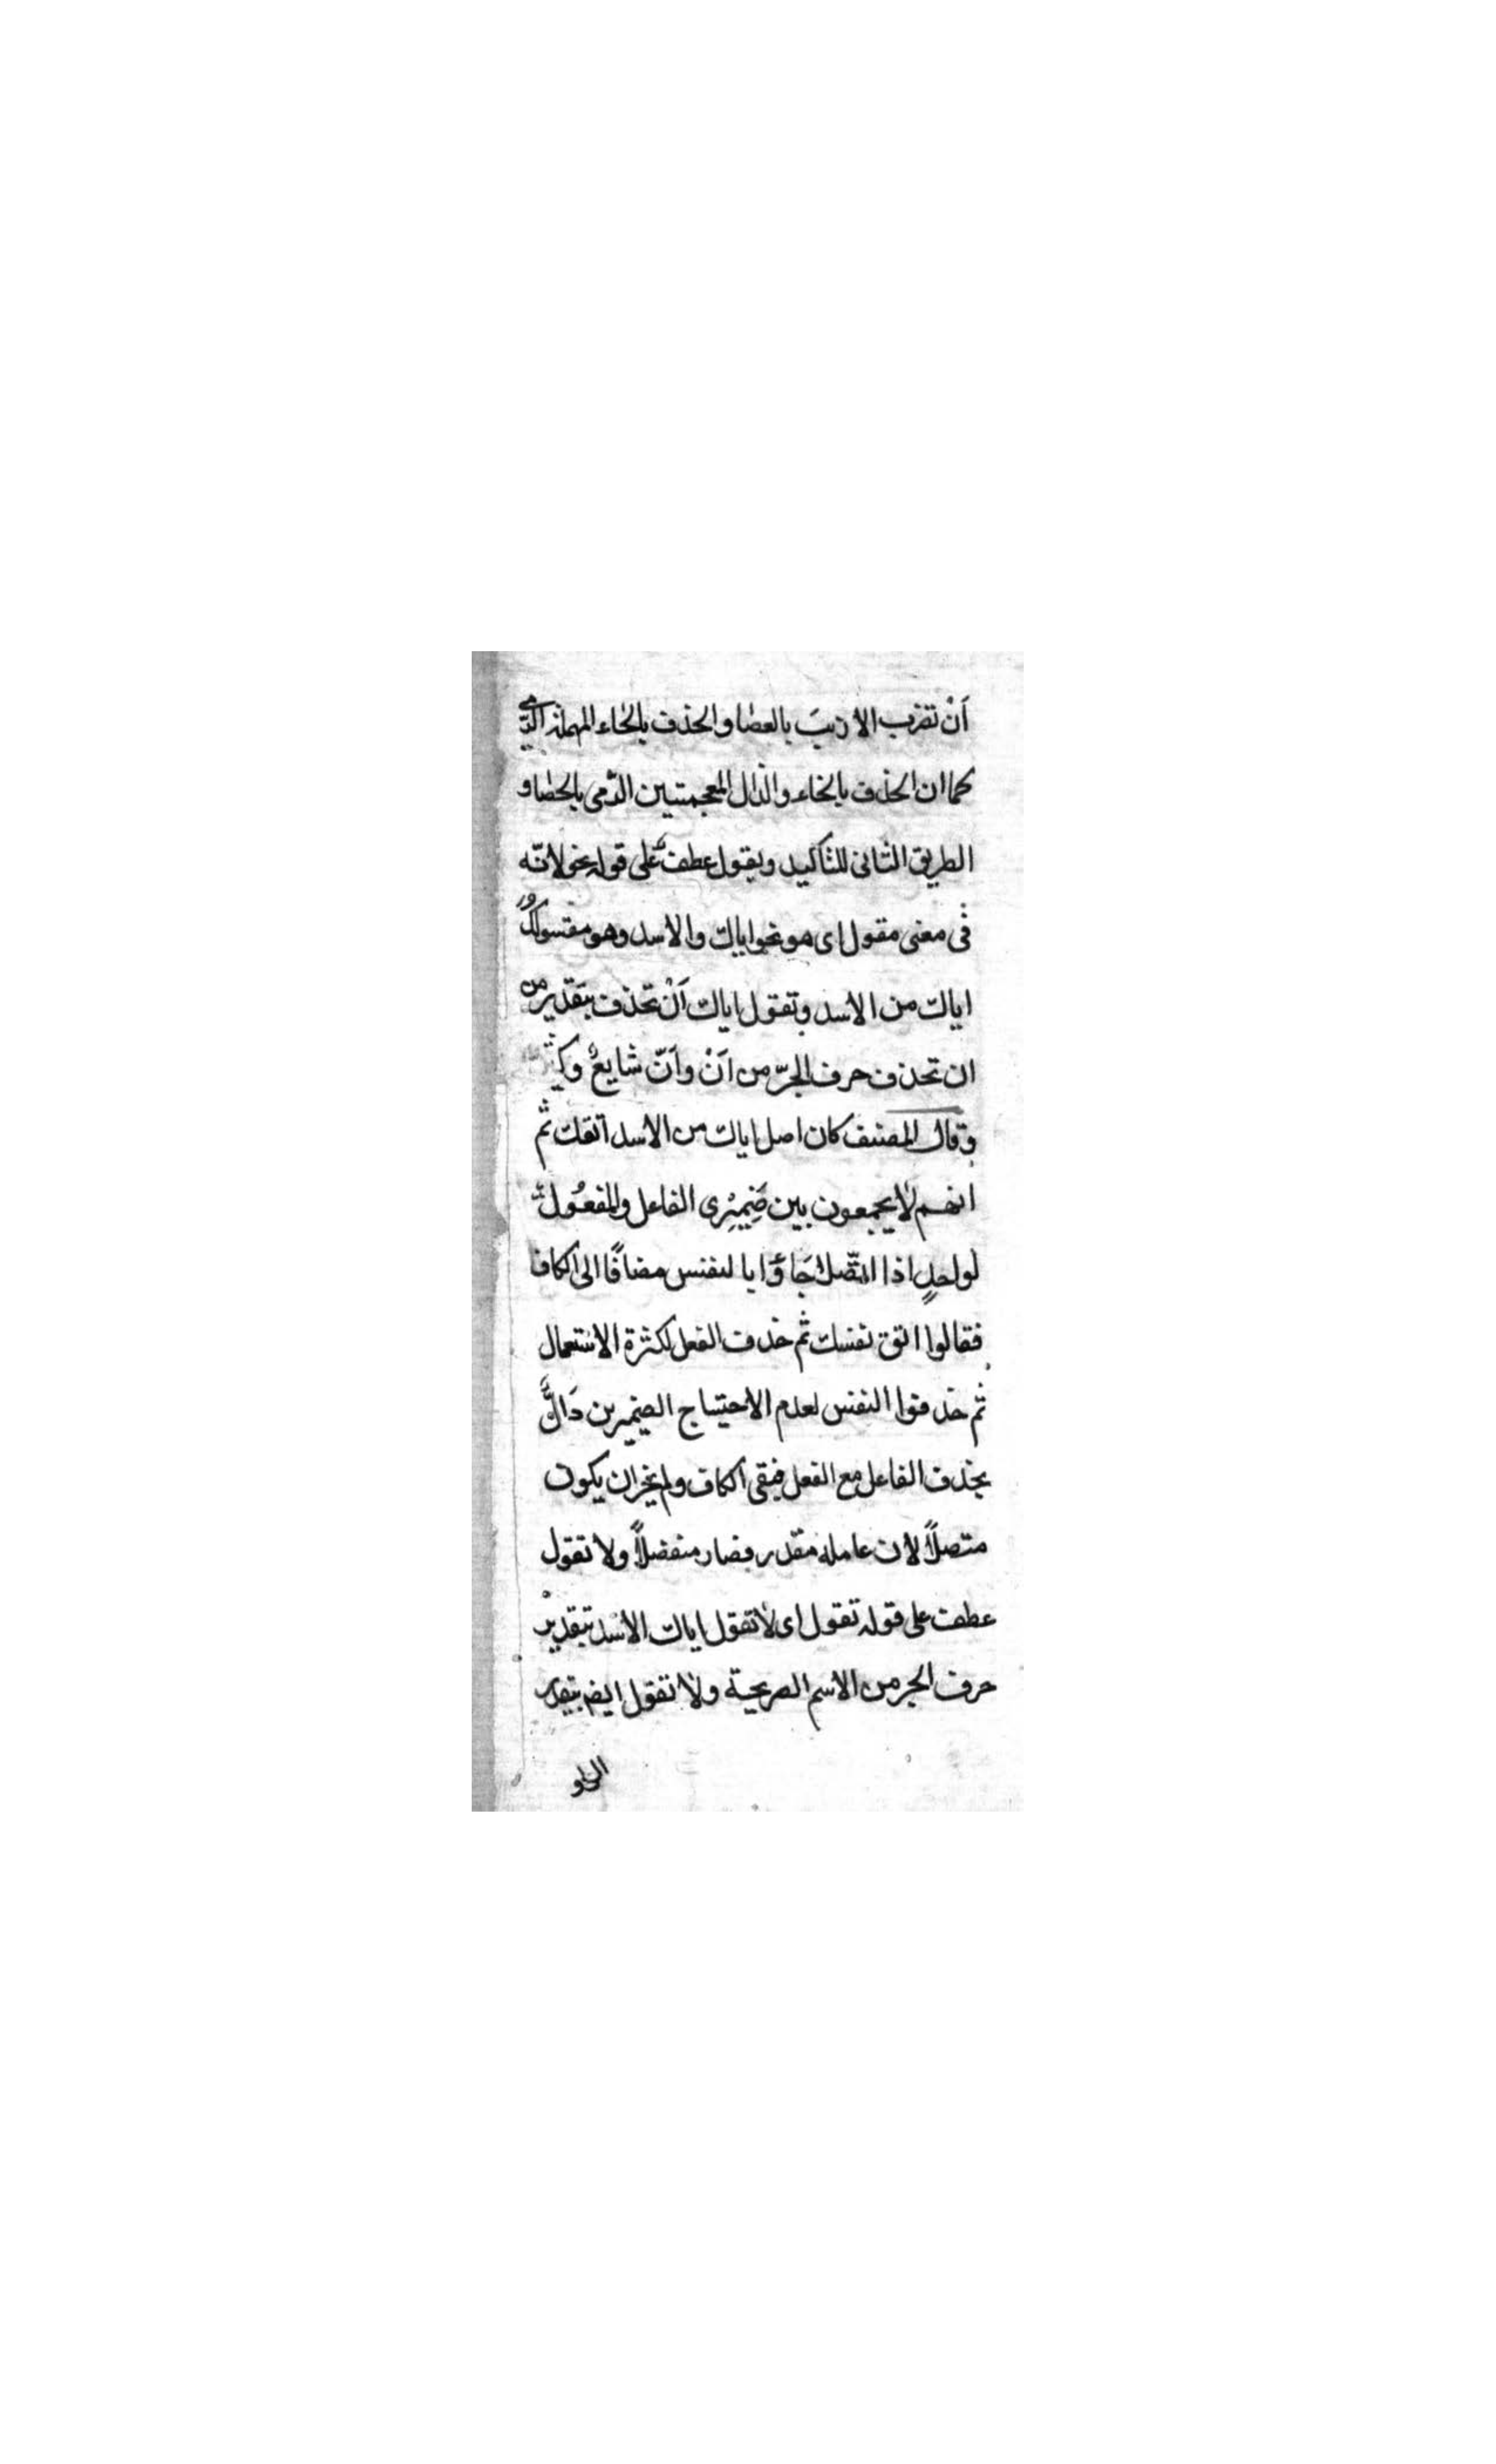 اَنْ تضرب الارنبَ بالعصا والحذف بالحاء المهملة الرمى
كما ان الخذف بالخاء والذال المعجمتين الرّمى بالحصا و
الطريق الثانى للتاكيد ويقول عطف على قوله نحو لانّه
فى معنى مقول اى هو نحو اياك والاسد وهو مقسولك
اياك من الاسد وتقول اياك اَنْ تحذف بتقدير من
ان تحذف حرف الجرّ من اَنْ واَنّ شايعٌ وكثير
وقال المصنف كان اصل اياك من الاسد اتقك ثم
انهم لا يجمعون بين ضَمِيْرِى الفاعل والمفعُول
لواحدٍ اذا اتّصلا جَاؤا بالنفس مضافًا الى الكاف
فقالوا اتق نفسك ثم حذف الفعل لكثرة الاستعمال
ثم حذفوا النفس لعدم الاحتياج الضميرين دَالٌّ
بحذف الفاعل مع الفعل فبقى الكاف ولم يجز ان يكون
متصلًا لان عامله مقدر فصار منفصلًا ولا تقول
عطف على قوله تقول اى لا تقول اياك الاسد بتقدير
حرف الجر من الاسم الصريحة ولا تقول ايضا بتقدير
الواو